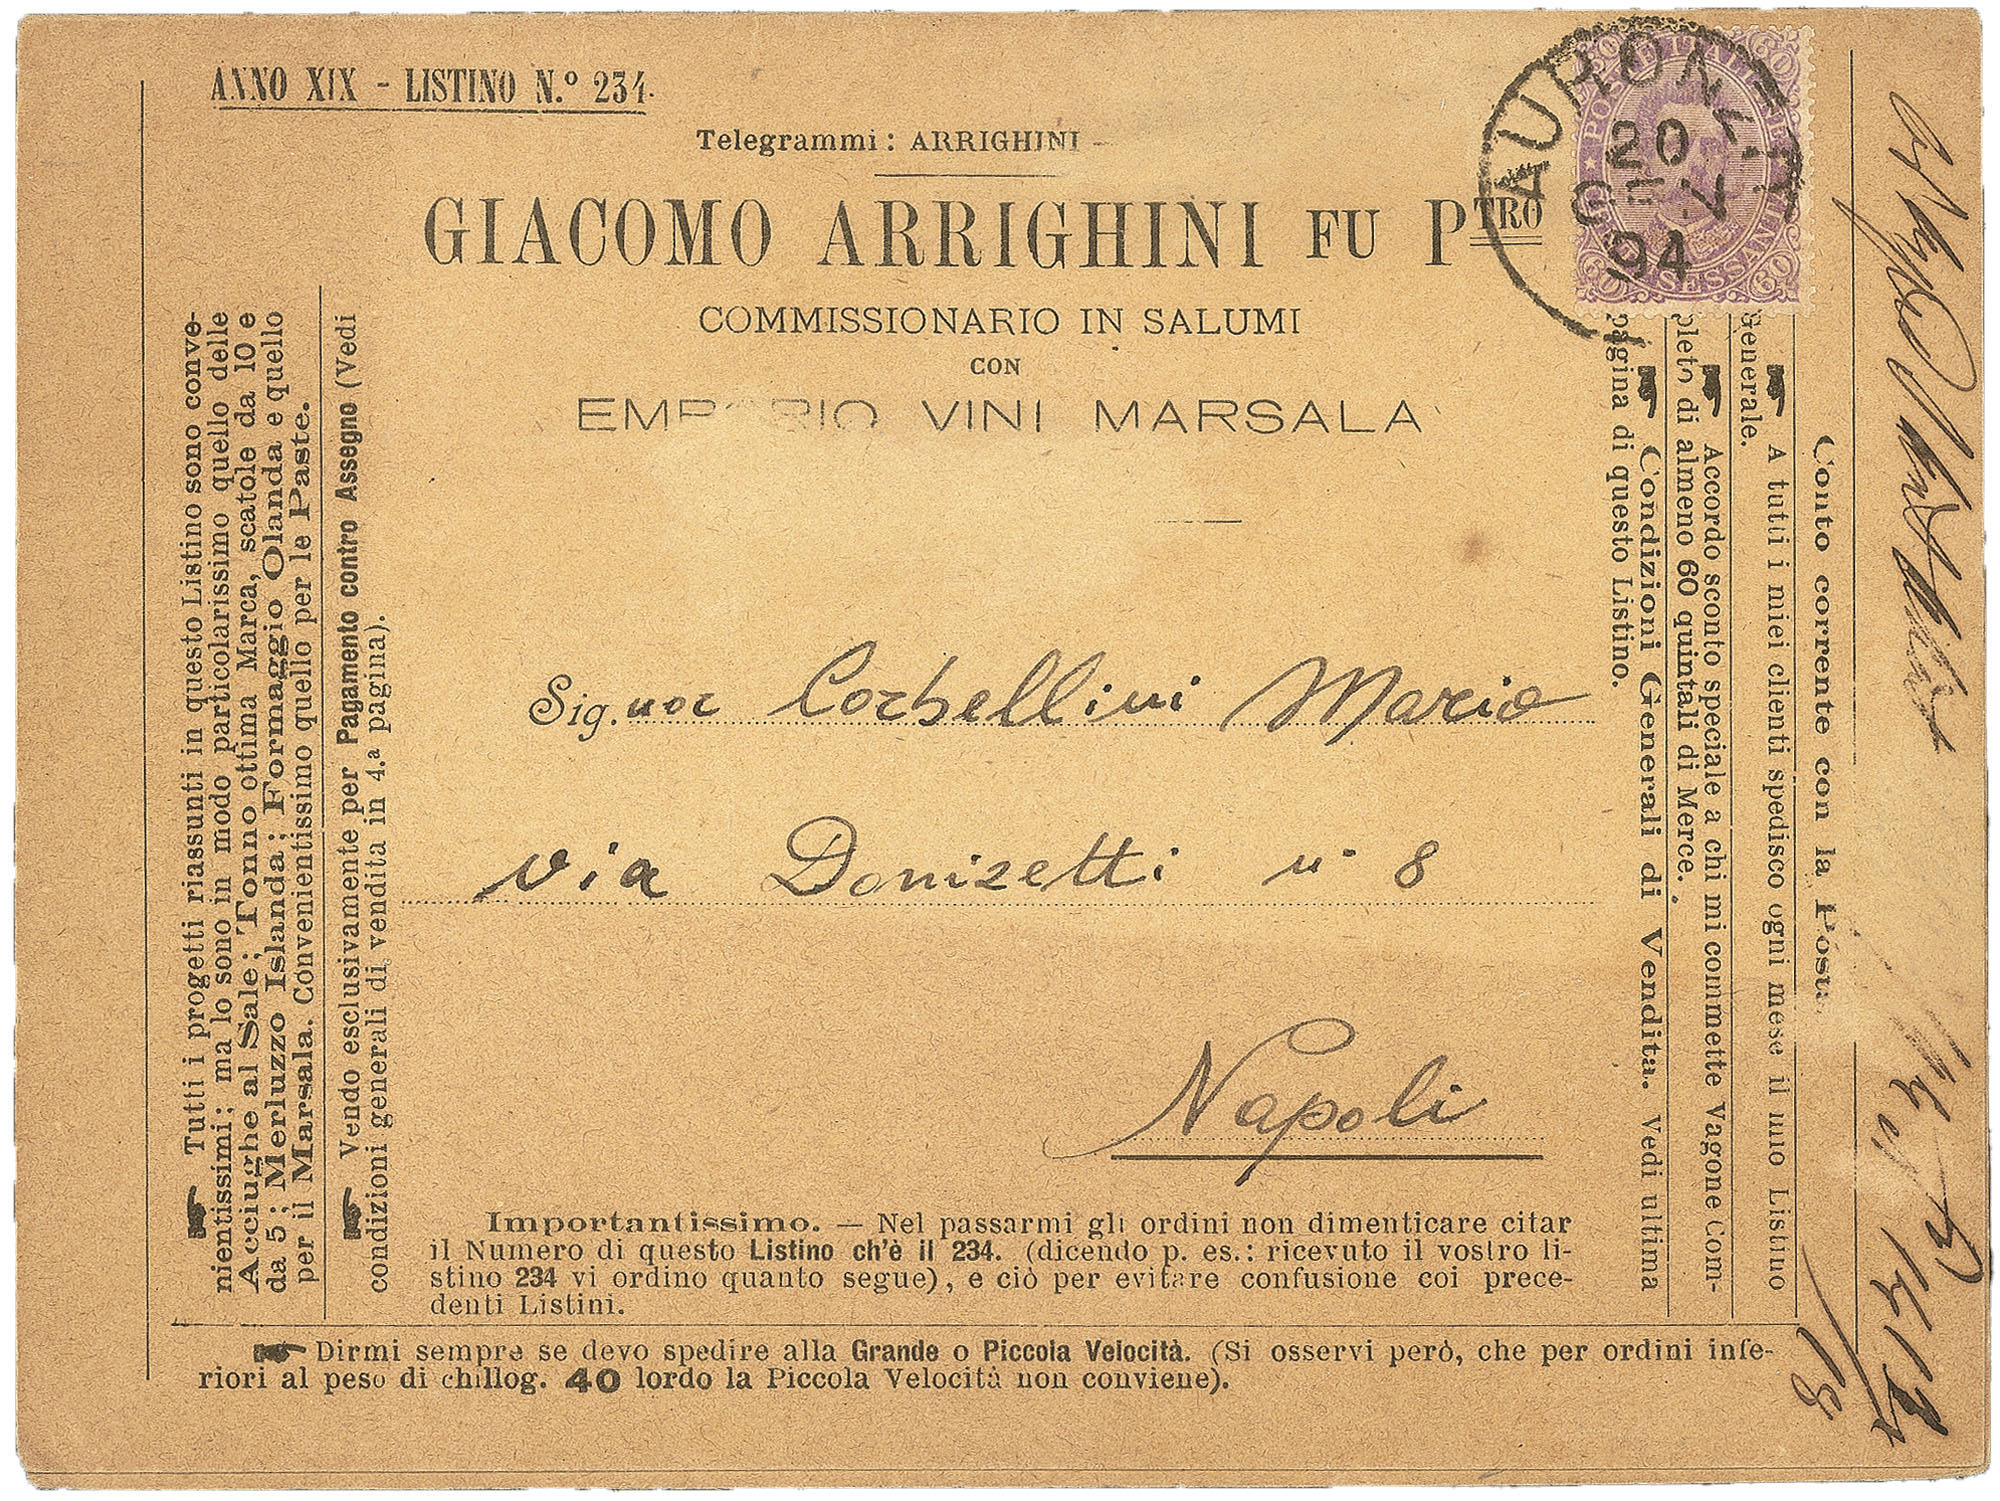 ANNO XIX - LISTINO N.º 234.
Telegrammi: ARRIGHINI
GIACOMO ARRIGHINI FU PTRO
COMMISSIONARIO IN SALUMI
CON
EMPORIO VINI MARSALA
AURONZO
20
GEN
94
POSTE ITALIANE
SESSANTA
60
60
60
60
Sig.nor Corbellini Mario
via Donizetti n. 8
Napoli
Importantissimo. — Nel passarmi gli ordini non dimenticare citar
il Numero di questo Listino ch'è il 234. (dicendo p. es.: ricevuto il vostro li-
stino 234 vi ordino quanto segue), e ciò per evitare confusione coi prece-
denti Listini.
☛ Dirmi sempre se devo spedire alla Grande o Piccola Velocità. (Si osservi però, che per ordini infe-
riori al peso di chilog. 40 lordo la Piccola Velocità non conviene).
☛ Tutti i progetti riassunti in questo Listino sono conve-
nientissimi; ma lo sono in modo particolarissimo quello delle
Acciughe al Sale; Tonno ottima Marca, scatole da 10 e
da 5; Merluzzo Islanda; Formaggio Olanda e quello
per il Marsala. Convenientissimo quello per le Paste.
☛ Vendo esclusivamente per Pagamento contro Assegno (Vedi
condizioni generali di vendita in 4.ª pagina).
Conto corrente con la Posta
☛ A tutti i miei clienti spedisco ogni mese il mio Listino
Generale.
☛ Accordo sconto speciale a chi mi commette Vagone Com-
pleto di almeno 60 quintali di Merce.
☛ Condizioni Generali di Vendita. Vedi ultima
pagina di questo Listino.